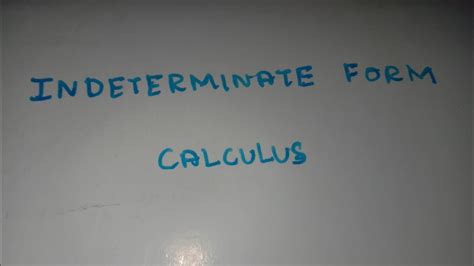 INDETERMINATE FORM
CALCULUS